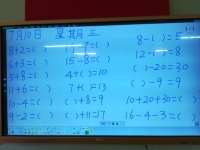 7月10日 星期三
8+2=( ) 17-7=( ) 8-( )=5
6+3=( ) 15-8=( ) 12-( )=8
5+8=( ) 4+( )=10 ( )-20=30
11+6=( ) 7+( )=13 ( )-9=9
10-( )=( ) ( )+8=9 10+20+30=( )
9-2=( ) ( )+11=17 16-4-3=( )